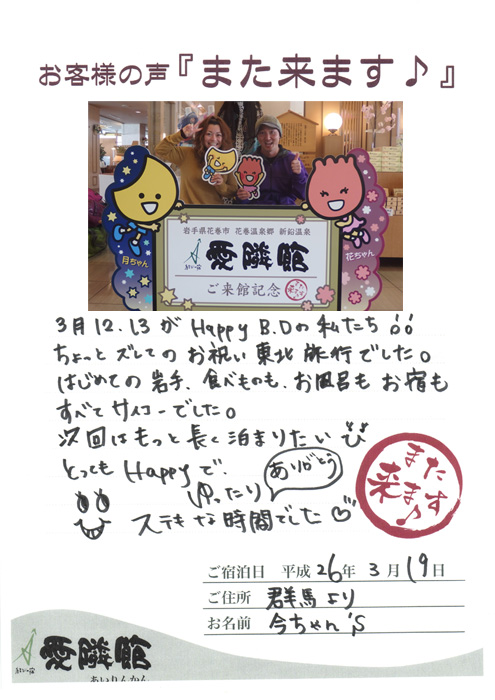 お客様の声『また来ます♪』
岩手県花巻市 花巻温泉郷 新鉛温泉
愛隣館
ご来館記念
月ちゃん
花ちゃん
3月12.13がHappy B.Dの私たち♪♪
ちょっとズレてのお祝い東北旅行でした。
はじめての岩手、食べものも、お風呂もお宿も
すべてサイコーでした。
次回はもっと長く泊まりたい
とってもHappyで、
ゆったり
ありがとう
ステキな時間でした♡
また来ます♪
ご宿泊日 平成26年3月19日
ご住所 群馬より
お名前 今ちゃん's
愛隣館
あいりんかん